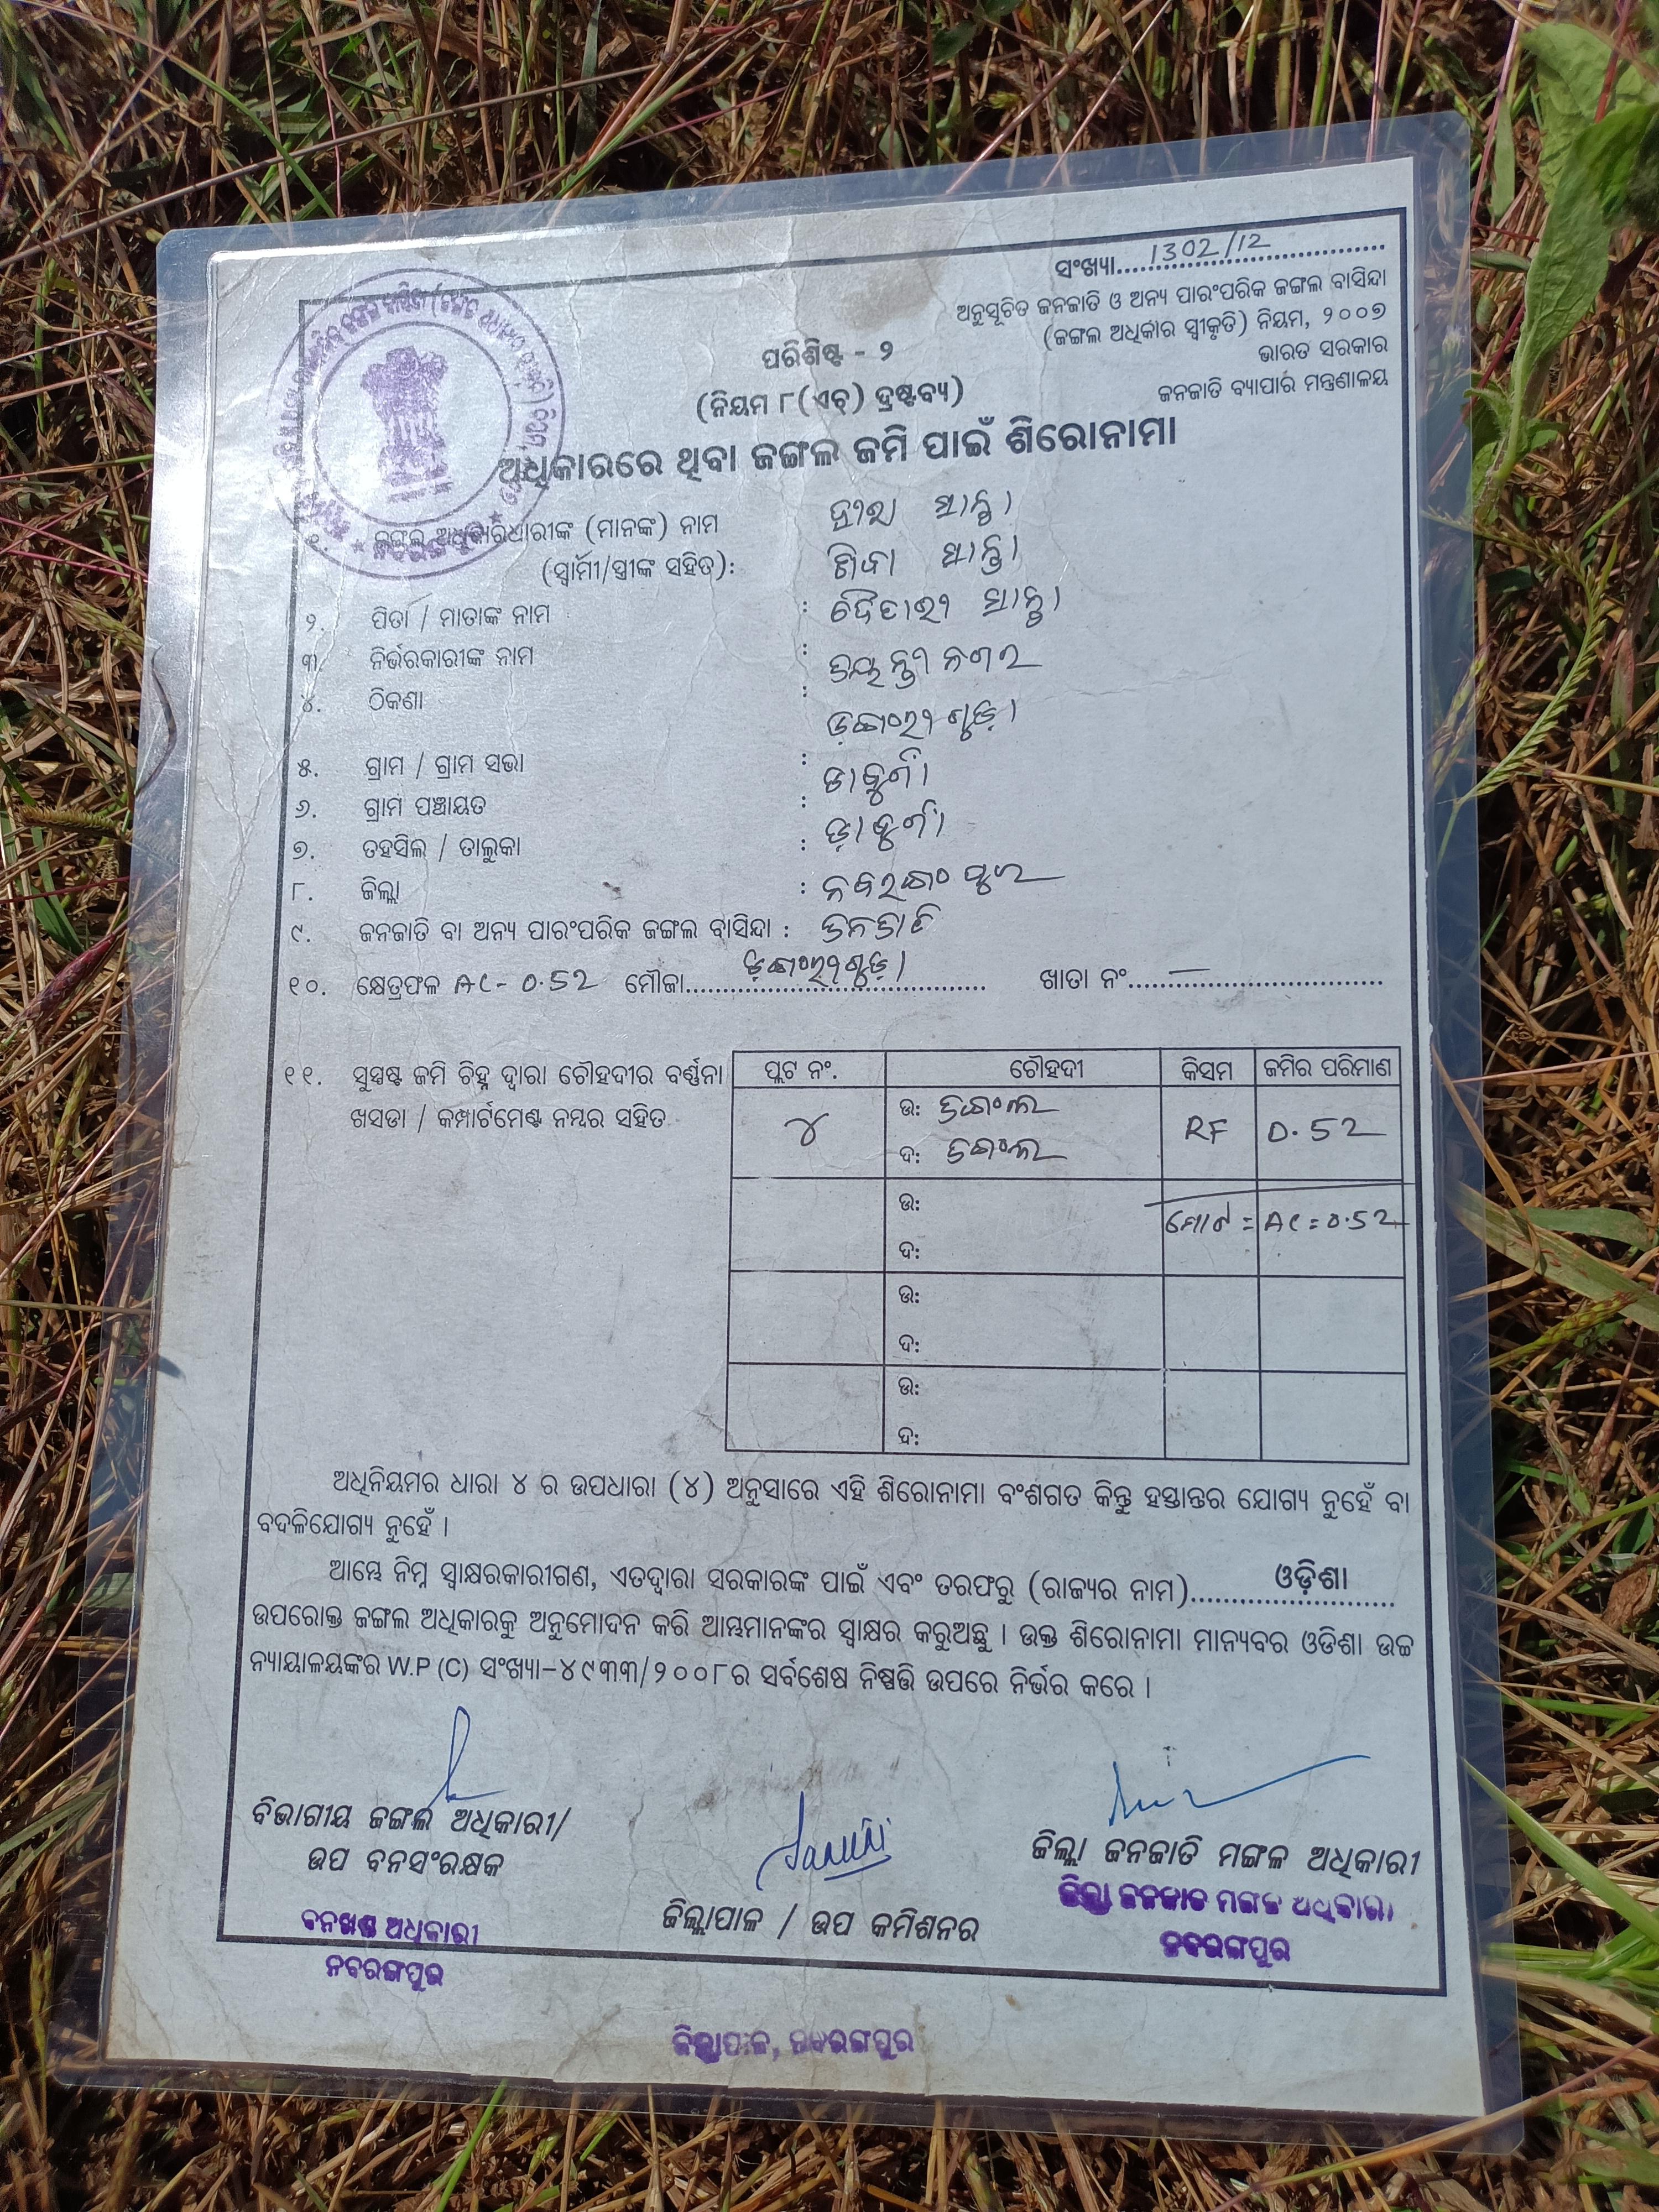 ସଂଖ୍ୟା.....1302/12.....
ଅନୁସୂଚିତ ଜନଜାତି ଓ ଅନ୍ୟ ପାରଂପରିକ ଜଙ୍ଗଲ ବାସିନ୍ଦା
(ଜଙ୍ଗଲ ଅଧିକାର ସ୍ୱୀକୃତି) ନିୟମ, ୨୦୦୭
ଭାରତ ସରକାର
ଜନଜାତି ବ୍ୟାପାର ମନ୍ତ୍ରଣାଳୟ
ପରିଶିଷ୍ଟ - ୨
(ନିୟମ ୮(ଏଚ୍) ଦ୍ରଷ୍ଟବ୍ୟ)
ଅଧିକାରରେ ଥିବା ଜଙ୍ଗଲ ଜମି ପାଇଁ ଶିରୋନାମା
୧. ଜଙ୍ଗଲ ଅଧିକାରଧାରୀଙ୍କ (ମାନଙ୍କ) ନାମ
(ସ୍ୱାମୀ/ସ୍ତ୍ରୀଙ୍କ ସହିତ):
୨. ପିତା / ମାତାଙ୍କ ନାମ :
୩. ନିର୍ଭରକାରୀଙ୍କ ନାମ :
୪. ଠିକଣା :
୫. ଗ୍ରାମ / ଗ୍ରାମ ସଭା :
୬. ଗ୍ରାମ ପଞ୍ଚାୟତ :
୭. ତହସିଲ / ତାଲୁକା :
୮. ଜିଲ୍ଲା : ନବରଙ୍ଗପୁର
୯. ଜନଜାତି ବା ଅନ୍ୟ ପାରଂପରିକ ଜଙ୍ଗଲ ବାସିନ୍ଦା : ଜନଜାତି
୧୦. କ୍ଷେତ୍ରଫଳ AC- 0.52 ମୌଜା.......... ଖାତା ନଂ.....—.....
୧୧. ସୁସ୍ପଷ୍ଟ ଜମି ଚିହ୍ନ ଦ୍ୱାରା ଚୌହଦୀର ବର୍ଣ୍ଣନା
ଖସଡା / କମ୍ପାର୍ଟମେଣ୍ଟ ନମ୍ବର ସହିତ
ପ୍ଲଟ ନଂ. ଚୌହଦୀ କିସମ ଜମିର ପରିମାଣ
୪ ଉ: ଜଙ୍ଗଲ RF 0.52
ଦ: ଜଙ୍ଗଲ
ଉ: ମୋଟ = AC = 0.52
ଦ:
ଉ:
ଦ:
ଉ:
ଦ:
ଅଧିନିୟମର ଧାରା ୪ ର ଉପଧାରା (୪) ଅନୁସାରେ ଏହି ଶିରୋନାମା ବଂଶଗତ କିନ୍ତୁ ହସ୍ତାନ୍ତର ଯୋଗ୍ୟ ନୁହେଁ ବା
ବଦଳିଯୋଗ୍ୟ ନୁହେଁ ।
ଆମ୍ଭେ ନିମ୍ନ ସ୍ୱାକ୍ଷରକାରୀଗଣ, ଏତଦ୍ୱାରା ସରକାରଙ୍କ ପାଇଁ ଏବଂ ତରଫରୁ (ରାଜ୍ୟର ନାମ).....ଓଡ଼ିଶା.....
ଉପରୋକ୍ତ ଜଙ୍ଗଲ ଅଧିକାରକୁ ଅନୁମୋଦନ କରି ଆମ୍ଭମାନଙ୍କର ସ୍ୱାକ୍ଷର କରୁଅଛୁ । ଉକ୍ତ ଶିରୋନାମା ମାନ୍ୟବର ଓଡିଶା ଉଚ୍ଚ
ନ୍ୟାୟାଳୟଙ୍କର W.P (C) ସଂଖ୍ୟା-୪୯୩୩/୨୦୦୮ର ସର୍ବଶେଷ ନିଷ୍ପତ୍ତି ଉପରେ ନିର୍ଭର କରେ ।
ବିଭାଗୀୟ ଜଙ୍ଗଲ ଅଧିକାରୀ/
ଉପ ବନସଂରକ୍ଷକ
ବନଖଣ୍ଡ ଅଧିକାରୀ
ନବରଙ୍ଗପୁର
ଜିଲ୍ଲାପାଳ / ଉପ କମିଶନର
ଜିଲ୍ଲା ଜନଜାତି ମଙ୍ଗଳ ଅଧିକାରୀ
ଜିଲ୍ଲା ଜନଜାତି ମଙ୍ଗଳ ଅଧିକାରୀ
ନବରଙ୍ଗପୁର
ଜିଲ୍ଲାପାଳ, ନବରଙ୍ଗପୁର